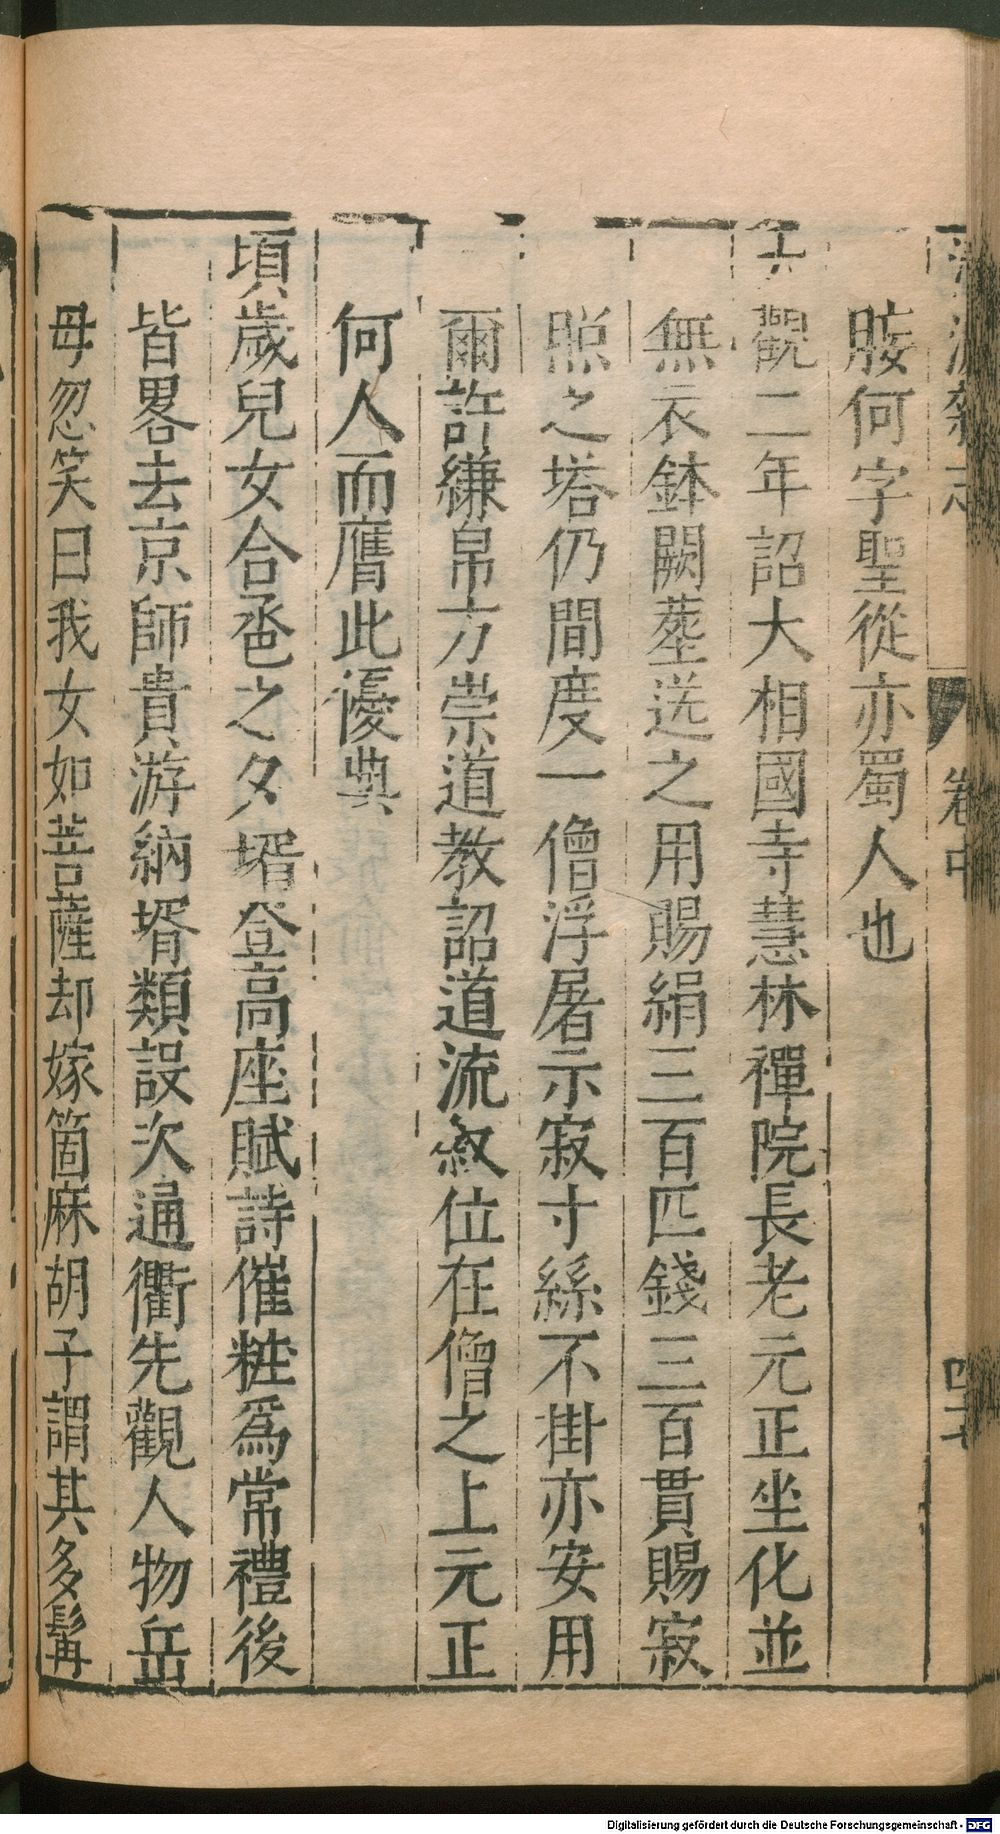 胺何字聖從亦蜀人也
大觀二年詔大相國寺慧林禪院長老元正坐化並
無衣鉢闕塟送之用賜絹三百匹錢三百貫賜寂
照之塔仍間度一僧浮屠示寂寸絲不掛亦安用
爾許縑帛方崇道教詔道流敘位在僧之上元正
何人而膺此優典
頃歲兒女合巹之夕壻登高座賦詩催粧爲常禮後
皆畧去京師貴游納壻類設次通衢先觀人物岳
母忽笑曰我女如菩薩却嫁箇麻胡子謂其多髯
卷中
Digitalisierung gefördert durch die Deutsche Forschungsgemeinschaft - DFG